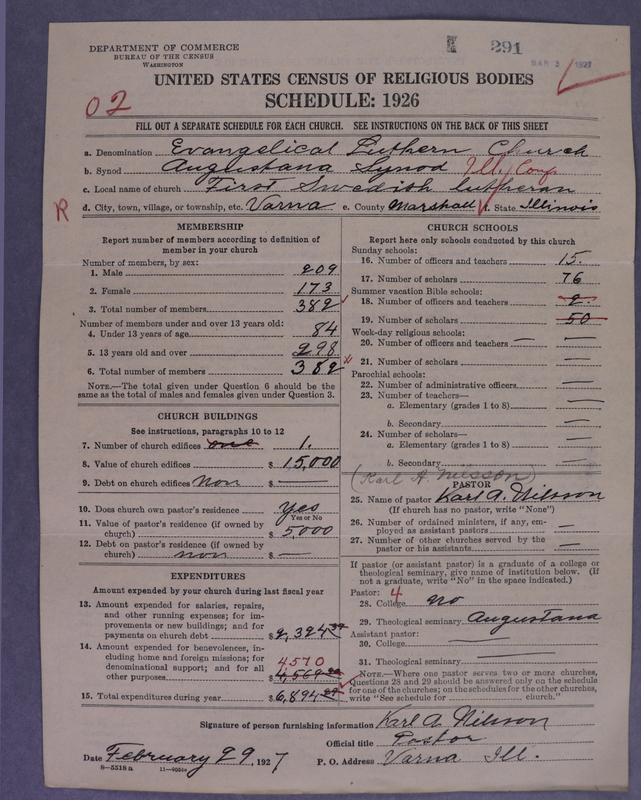 DEPARTMENT OF COMMERCE
BUREAU OF THE CENSUS
WASHINGTON
291
MAR 3 1927
UNITED STATES CENSUS OF RELIGIOUS BODIES
SCHEDULE: 1926
02
FILL OUT A SEPARATE SCHEDULE FOR EACH CHURCH. SEE INSTRUCTIONS ON THE BACK OF THIS SHEET
a. Denomination Evangelical Luthern Church
b. Synod Augustana Synod Ill. Conf
c. Local name of church First Swedish Lutheran
R d. City, town, village, or township, etc. Varna e. County Marshall f. State Illinois
MEMBERSHIP
Report number of members according to definition of
member in your church
Number of members, by sex:
1. Male 209
2. Female 173
3. Total number of members 382
Number of members under and over 13 years old:
4. Under 13 years of age 84
5. 13 years old and over 298
6. Total number of members 382
NOTE.—The total given under Question 6 should be the
same as the total of males and females given under Question 3.
CHURCH BUILDINGS
See instructions, paragraphs 10 to 12
7. Number of church edifices one 1.
8. Value of church edifices $15,000
9. Debt on church edifices Non $ —
10. Does church own pastor's residence Yes
Yes or No
11. Value of pastor's residence (if owned by
church) $5,000
12. Debt on pastor's residence (if owned by
church) non $ —
EXPENDITURES
Amount expended by your church during last fiscal year
13. Amount expended for salaries, repairs,
and other running expenses; for im-
provements or new buildings; and for
payments on church debt $2,324
14. Amount expended for benevolences, in-
cluding home and foreign missions; for
denominational support; and for all
other purposes 4570 $4,569
15. Total expenditures during year $6,894
CHURCH SCHOOLS
Report here only schools conducted by this church
Sunday schools:
16. Number of officers and teachers 15.
17. Number of scholars 76
Summer vacation Bible schools:
18. Number of officers and teachers 2.
19. Number of scholars 50
Week-day religious schools:
20. Number of officers and teachers — —
21. Number of scholars —
Parochial schools:
22. Number of administrative officers —
23. Number of teachers—
a. Elementary (grades 1 to 8) —
b. Secondary —
24. Number of scholars—
a. Elementary (grades 1 to 8) —
b. Secondary —
(Karl A. Nilsson)
PASTOR
25. Name of pastor Karl A. Nilsson
(If church has no pastor, write "None")
26. Number of ordained ministers, if any, em-
ployed as assistant pastors —
27. Number of other churches served by the
pastor or his assistants —
If pastor (or assistant pastor) is a graduate of a college or
theological seminary, give name of institution below. (If
not a graduate, write "No" in the space indicated.)
Pastor: 4
28. College no
29. Theological seminary Augustana
Assistant pastor:
30. College —
31. Theological seminary —
NOTE.—Where one pastor serves two or more churches,
Questions 28 and 29 should be answered only on the schedule
for one of the churches; on the schedules for the other churches,
write "See schedule for church."
Signature of person furnishing information Karl A. Nilsson
Official title Pastor
Date February 29, 1927 P. O. Address Varna Ill.
8—5518a